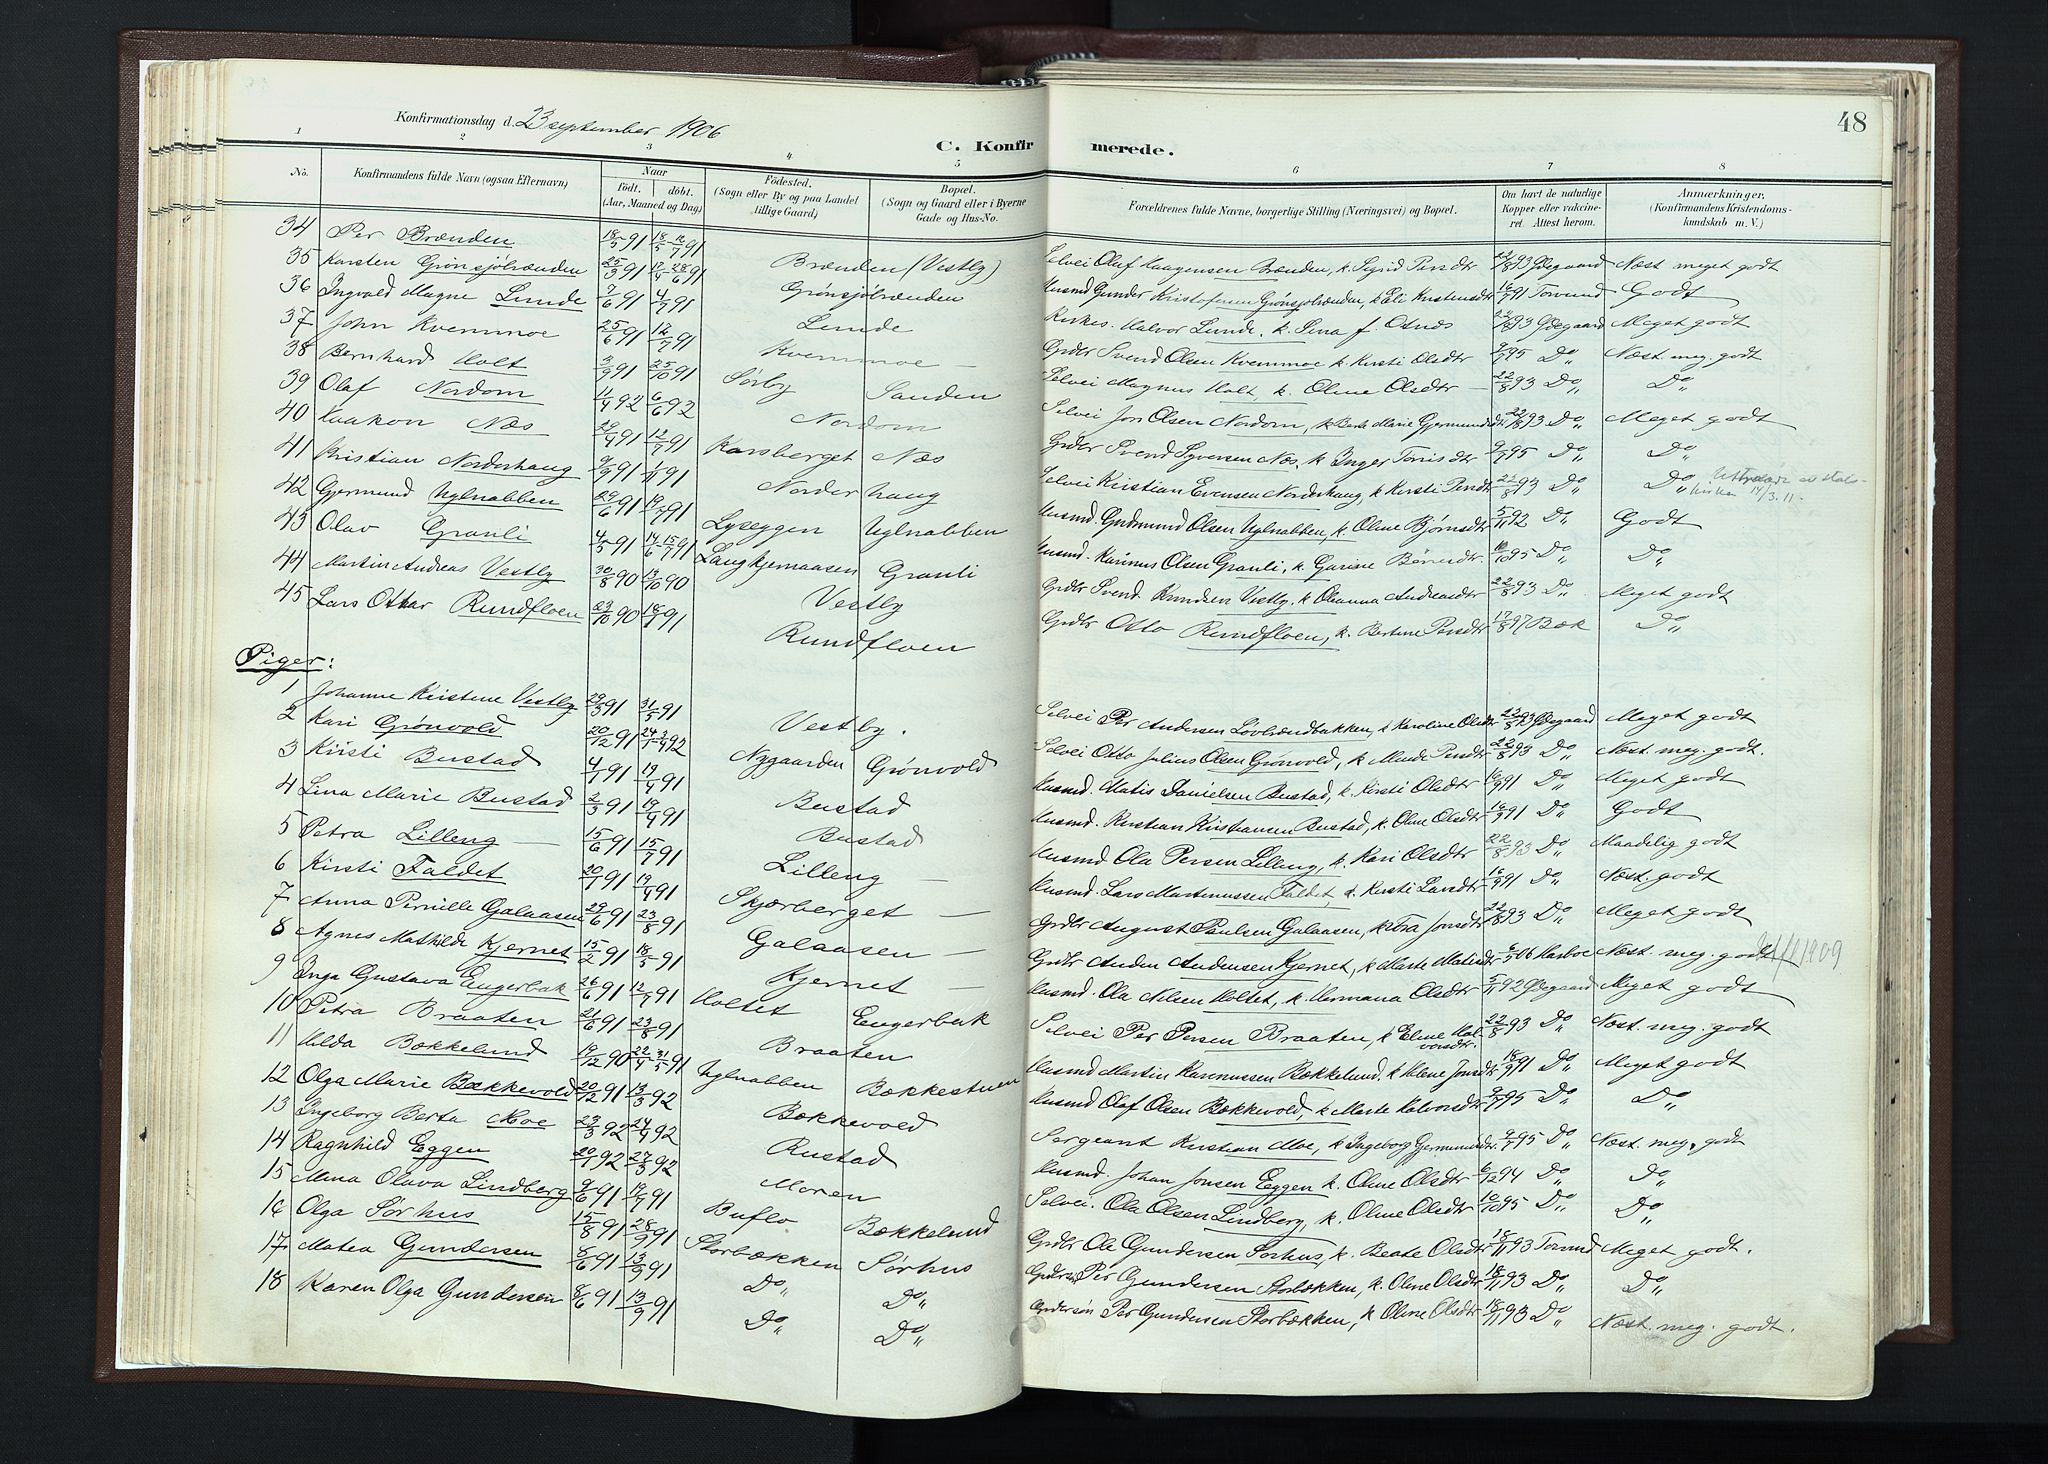 48
Konfirmationsdag d. 23 september 1906
C. Konfirmerede.
1 2 3 4 5 6 7 8
No. Konfirmandens fulde Navn (ogsaa Efternavn) Naar født. døbt. (Aar, Maaned og Dag) Fødested. (Sogn eller By og paa Landet tillige Gaard) Bopæl. (Sogn og Gaard eller i Byerne Gade og Hus-No. Forældrenes fulde Navne, borgerlige Stilling (Næringsvei) og Bopæl. Om havt de naturlige Kopper eller vaccineret. Attest herom. Anmærkninger, (Konfirmandens Kristendomskundskab m. V.)
34 Per Brænden 18/5 91 18/5 - 12/7 91 Brænden (Vestby) Selvei Olaf Haagensen Brænden, k. Sigrid Persdtr 22/8 93 Ødegaard Næst meget godt
35 Karsten Grønsjøbrænden 25/3 91 12/4 - 28/6 91 Grønsjøbrænden Husmd Gunder Kristofersen Grønsjobrænden, k Eli Kristensdtr 16/9 91 Torvund Godt
36 Ingvald Magne Lunde 7/6 91 4/7 91 Lunde Kirkes. Halvor Lunde, k. Sina f. Otnæs 22/8 93 Ødegaard Meget godt
37 John Kvemmoe 25/6 91 12/7 91 Kvemmoe — Grdbr Svend Olsen Kvemmoe k Kirsti Olsdtr 9/7 95 Do Næst meg. godt
38 Bernhard Holt 3/9 91 25/10 91 Sørby Sanden Selvei Magnus Holt, k. Oline Olsdtr — 22/8 93 Do Do
39 Olaf Nordom 11/4 92 6/6 92 Nordom Selvei Jon Olsen Nordom, k Berte Marie Gjermundsdtr 22/8 93 Do Meget godt
40 Haakon Næs 29/4 91 12/7 91 Karsberget Næs Grdbr Svend Syversen Næs, k Inger Torrisdtr 9/7 95 Do Do
41 Kristian Norderhaug 9/9 91 1/11 91 Norderhaug Selvei Kristian Evensen Norderhaug, k Kersti Persdtr 22/8 93 Do Do Uttraadt av Statskirken 14/3.11.
42 Gjermund Uglnabben 29/6 91 19/7 91 Lyseggen Uglnabben Husmd. Gudmund Olsen Uglnabben, k. Oline Bjørnsdtr 5/11 92 Do Godt
43 Olav Granli 4/5 91 14/6 - 15/7 91 Langkjernaasen Granli Husmd. Karinus Olsen Granli, k. Gurine Børresdtr. 10/10 95 Do Do
44 Martin Andreas Vestby 30/8 90 19/10 90 Vestby Grdbr Svend Knudsen Vestby, k Oleanna Andreasdtr 22/8 93 Do Meget godt
45 Lars Otkar Rundfloen 23/10 90 18/1 91 Rundfloen Grdbr Otto Rundfloen, k. Bertine Persdtr 17/8 97 Bæk Do
Piger:
1 Johanne Kirstine Vestby 29/3 91 31/5 91 Vestby. Selvei Per Andersen Løvbrændbakken, k Karoline Olsdtr 22/8 93 Ødegaard Meget godt
2 Kari Grønvold 20/12 91 24/1 - 3/4 92 Nygaarden Grønvold Selvei Otto Julius Olsen Grønvold, k Minde Persdtr 22/8 93 Do Næst. meg. godt.
3 Kirsti Bustad 4/1 91 19/4 91 Bustad Husmd. Matis Danielsen Bustad, k. Kirsti Olsdtr 16/9 91 Do Meget godt
4 Lina Marie Bustad 2/3 91 19/4 91 Bustad Husmd. Kristian Kristiansen Bustad, k. Oline Olsdtr 16/9 91 Do Godt
5 Petra Lilleng — 15/6 91 15/7 91 Lilleng — Husmd Ola Persen Lilleng, k. Kari Olsdtr 22/8 93 Do Maadelig godt
6 Kirsti Faldet 20/1 91 19/4 91 Skjærberget — Husmd. Lars Martinussen Faldet, k. Kirsti Larsdtr 16/9 91 Do Næst. godt
7 Anna Pernille Galaasen 29/6 91 23/8 91 Galaasen — Grdbr August Paulsen Galaasen, k Tra Jonsdtr 22/8 93 Do Meget godt
8 Agnes Mathilde Kjernet 15/2 91 18/5 91 Kjernet — Grdbr Anden Andersen Kjernet, k Marte Matisdtr 6/5 06 Harboe Næst. meg. godt 1909
9 Inga Gustava Engerbak 26/6 91 12/7 91 Holtet Engerbak Husmd. Ola Nilsen Holtet, k. Hermana Olsdtr 5/11 92 Ødegaard Meget godt
10 Petra Braaten 21/6 91 23/8 91 Braaten Selvei Per Persen Braaten, k Eline Halvorsdtr. 22/8 93 Do Næst. meg. godt
11 Hilda Bækkelund 19/12 90 22/4 - 31/5 91 Uglnabben Bækkestuen Husmd Martin Rasmussen Bækkelund, k Helene Jonsdtr 18/9 91 Do Meget godt
12 Olga Marie Bækkevold 20/12 91 13/3 92 Bækkevold Husmd Olaf Olsen Bækkevold, k Marte Halvorsdtr 9/7 95 Do Do
13 Ingeborg Berta Moe 23/3 92 24/4 92 Rustad Sergeant Kristian Moe, k Ingeborg Gjermundsdtr. 9/7 95 Do Næst. meg. godt
14 Ragnhild Eggen 20/1 92 27/3 92 Moren Husmd. Johan Jonsen Eggen k. Oline Olsdtr 6/12 94 Do Do
15 Mina Olava Lindberg 9/6 91 19/7 91 Buflo Bækkelund Selvei. Ola Olsen Lindberg, k. Oline Olsdtr 10/10 95 Do Do
16 Olga Sørhus 15/8 91 28/9 91 Storbækken Sørhus Grdbr Ole Gundersen Sørhus, k. Beate Olsdtr 18/11 93 Torvnd Meget godt.
17 Matea Gundersen 8/6 91 13/9 91 Do Do Per Gundersen Storbækken, k. Oline Olsdtr 18/11 93 Do Do
18 Karen Olga Gundersen 8/6 91 13/9 91 Do Do Per Gundersen Storbækken, k Oline Olsdtr 18/11 93 Do Næst. meg. godt.